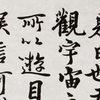 是日也
觀宇宙
所以遊目
娛信可